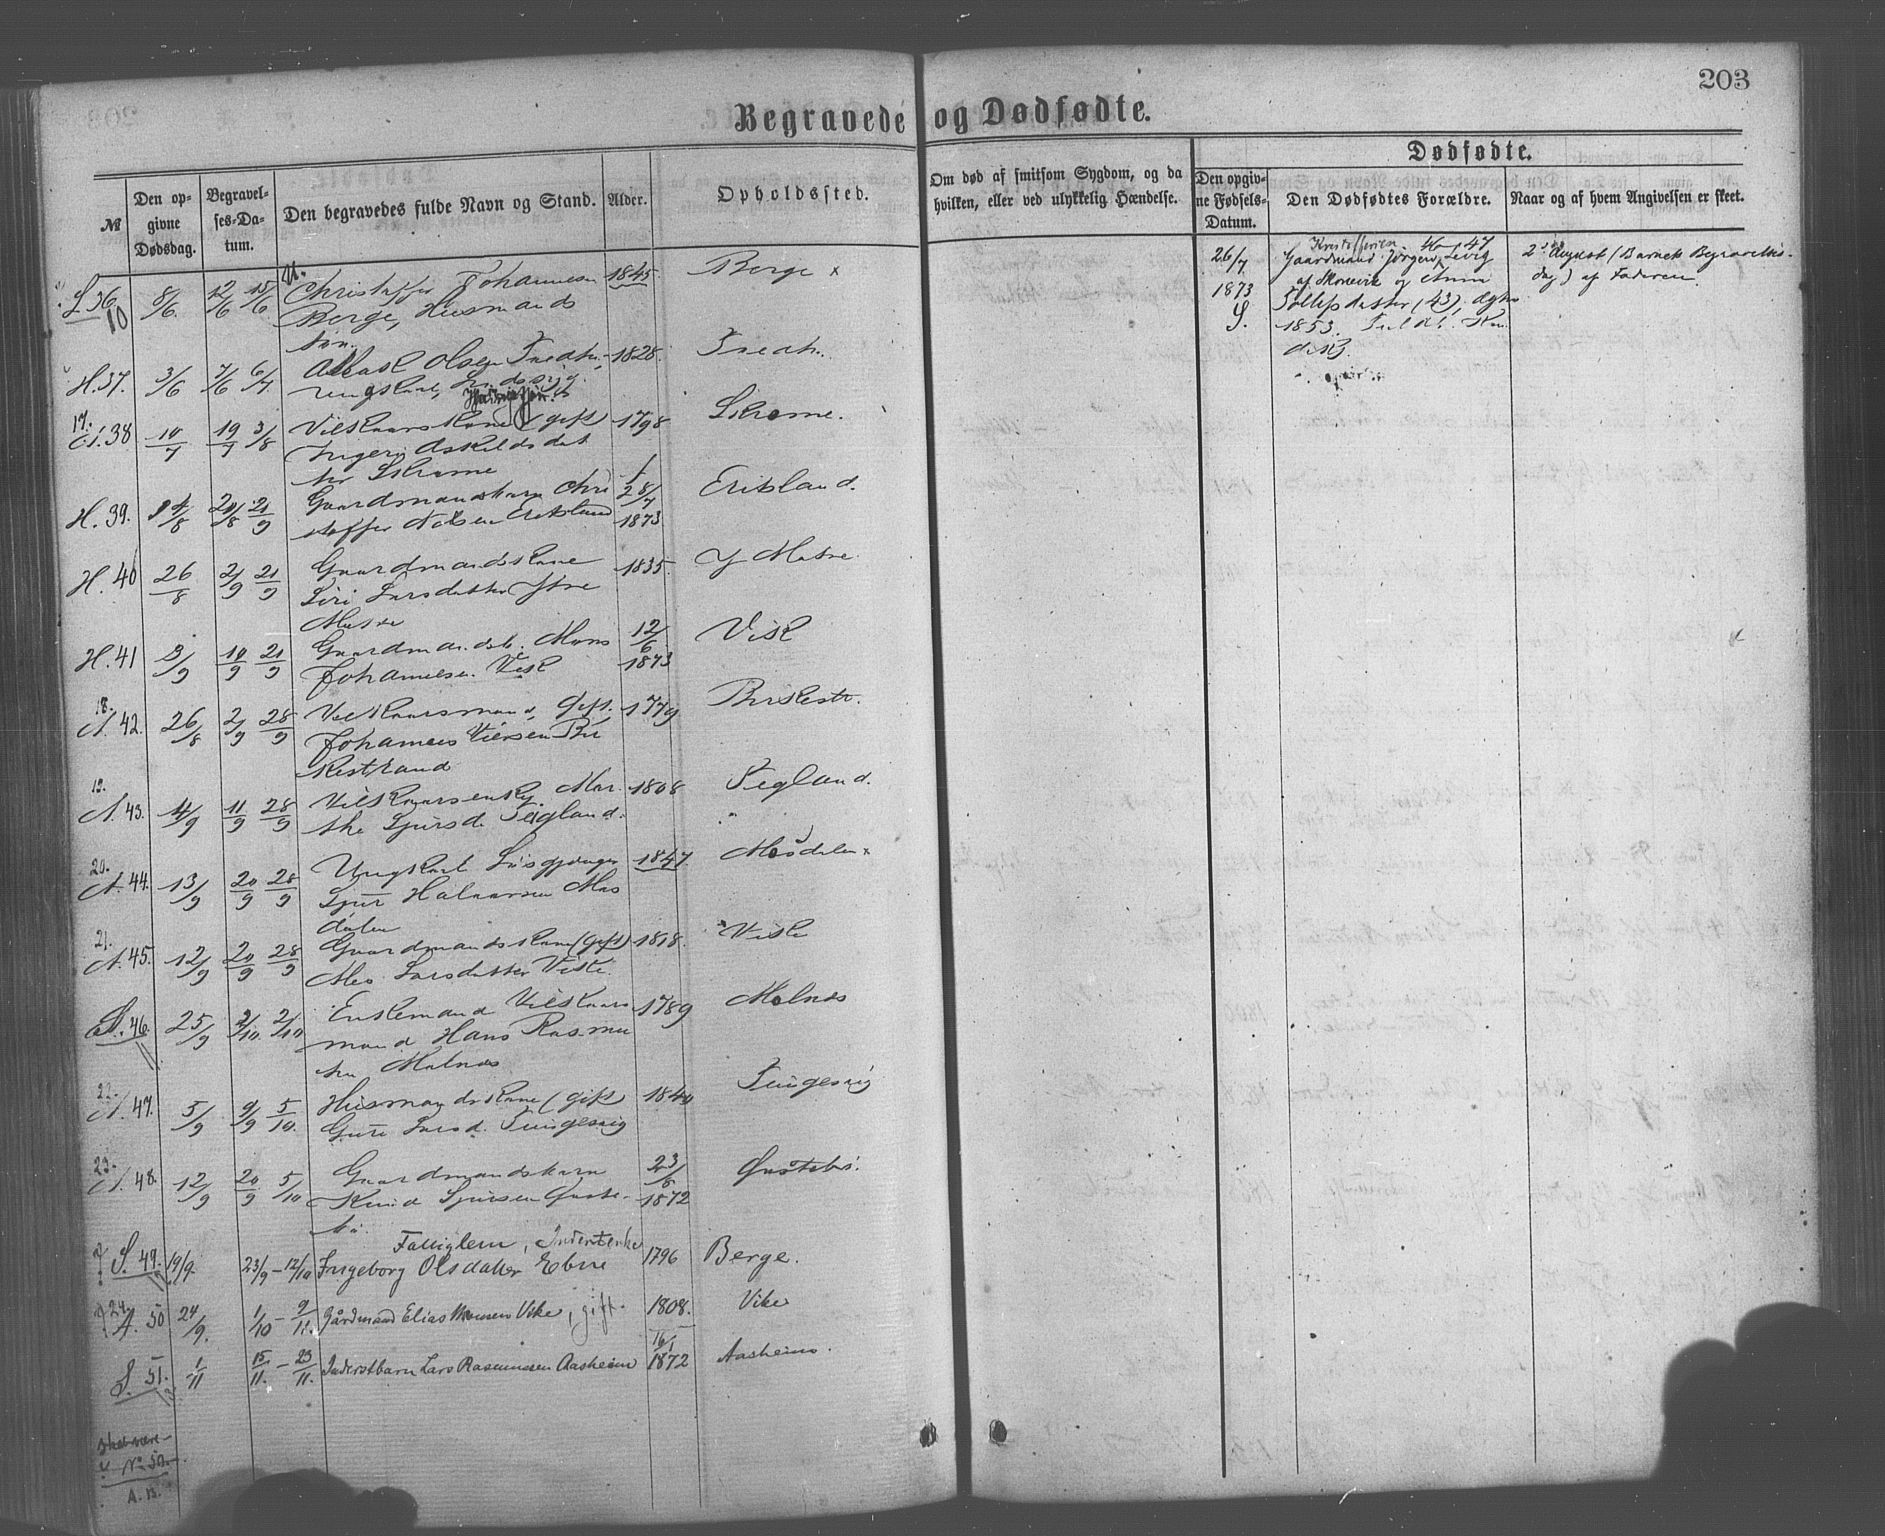 203
Begravede og Dødfødte.
№
Den opgivne Dødsdag.
Begravelses-Datum.
Den begravedes fulde Navn og Stand.
Alder.
Opholdssted.
Om død af smitsom Sygdom, og da hvilken, eller ved ulykkelig Hændelse.
Dødfødte.
Den opgivne Fødsels-Datum.
Den Dødfødtes Forældre.
Naar og af hvem Angivelsen er skeet.
S. 36. 8/6 12/6 15/6 Christoffer Johannesen 1845 Berge x
10 Berge, Husmands
søn.
H. 37. 3/6 7/6 6/7 Aksel Olsen 1828.
Ungkarl,
17.
A. 38 10/7 19/7 3/8 Vilkaarskone (gift 1798 Skrome.
Ingeri Askildsdat
ter Skrome
H. 39. 8 20/8 21/9 Gaardmandsbarn Chri 28/7 Erikland.
stoffer Erikland 1873
H. 40 26/8 2/9 21/9 Gaardmandskone 1835. Y Matre
Siri Larsdatter Ytre
Matre
H. 41 3/9 10/9 21/9 Gaardmandsb. Mons 12/6 Visk
Johannesen Visk 1873
18.
A. 42. 26/8 2/9 28/9 Vilkaarsmand, gift. 1779 Birkestr.
Johannes Bir
kestrand
19.
A. 43. 4/9 11/9 28/9 Vilkaarsenke. Mar 1808 Tegland.
the Sjursd. Tegland.
20.
A. 44. 13/9 20/9 28/9 Ungkarl 1847 Mosdalen x
Sjur Halvarsen Mos
dalen
21.
A. 45. 12/9 20/9 28/9 Gaardmandskone (gift) 1818. Viske
Larsdatter
S. 46. 25/9 2/10 2/10 Enkemand Vilkaars 1789 Molnes
mand Hans Rasmu
sen Molnes
22.
A. 47. 5/9 9/9 5/10. Husmandskone (gift 1840 Tungesvig
Guri Larsd. Tungesvig
23.
A. 48. 12/9 20/9 5/10 Gaardmandsbarn 23/8 Gustebø.
Knud Sjursen Guste- 1872
bø.
Fattiglem, Inderstenke
S. 49. 19/9. 23/9 – 12/10 Ingeborg Olsdatter Ebne 1796 Berge.
24.
A. 50 24/9. 1/10 – 9/11. Gårdmand Elias Monsen Vike, gift. 1808. Vike
S. 51. 1/11 15/11. – 23/11. Inderstbarn Lars Rasmussen Aasheim 16/1 1872 Aasheim.
skal være
No 50.
A. B.
26/7 1873 S.
Kristoffersen 47
Gaardmand Jørgen
af Skonevik og Anna
Tollefsdatter (43),
1853.
2den August (Barnets Begravelses
dag) af Faderen.